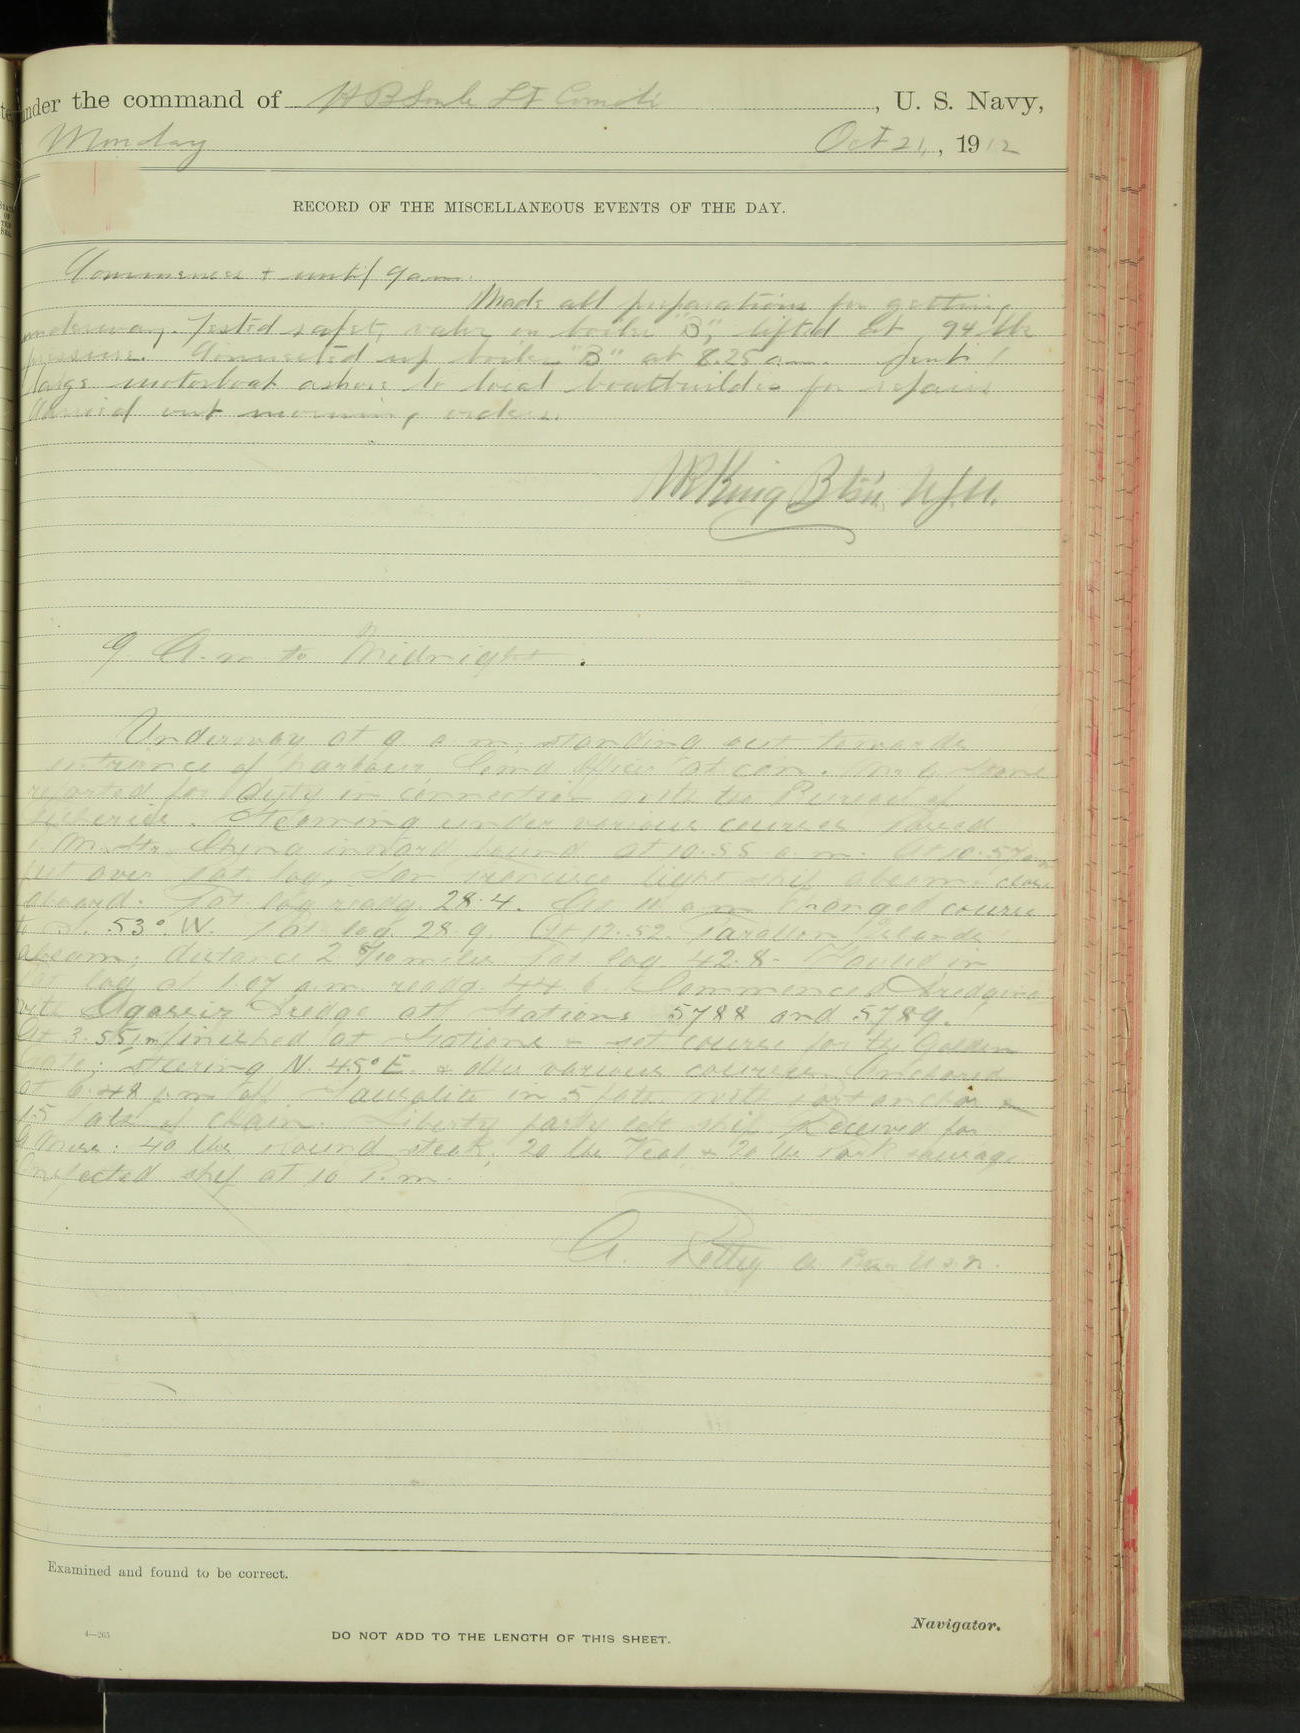 under the command of H B Soule Lt Comdr , U. S. Navy,
Monday Oct 21, , 1912
RECORD OF THE MISCELLANEOUS EVENTS OF THE DAY.
Commence + until 9 a.m.
Made all preparations for getting
underway. Tested safety valve on boiler "B", lifted at 94 lbs
pressure. Connected up boiler "B" at 8.25 a.m. Sent
large motorboat ashore to local boatbuilder for repairs
Carried out morning orders.
King Btsn U.S.N.
9 A.m to Midnight.
Underway at 9 a.m, standing out towards
entrance of harbour, Comd Officer at con.
reported for duty in connection with the Bureau of
Fisheries. Steaming under various courses. Passed
China inward bound at 10.55 a.m. At 10.57 a.m
put over pat log, San Francisco light ship abeam, close
aboard. Pat log readg 28.4. At 11 a.m changed course
to S. 53° W. Pat log 28.9. At 12.52. Farallon Islands
abeam; distance 2 miles Pat log 42.8. Hauled in
Pat log at 1.07 p.m. readg 44.6. Commenced dredging
with Agassiz dredge at Stations 5788 and 5789.
At 3.55 pm finished at Stations & set course for the Golden
Gate; steering N. 45° E. & other various courses. Anchored
at 6.48 p.m off Sausalito in 5 fatms with port anchor &
15 fats of chain. Liberty party left ship. Received for
G. Mess: 40 lbs round steak, 20 lbs Veal & 20 lbs Pork sausage
Inspected ship at 10 P.m.
A. Pettey A Btsn U.S.N.
Examined and found to be correct.
Navigator.
4—265
DO NOT ADD TO THE LENGTH OF THIS SHEET.